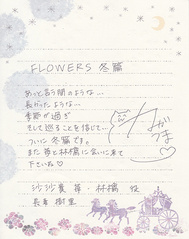 FLOWERS 冬篇
あっと言う間のような…
長かったような…
季節が過ぎ
そして巡ることを信じて…
ついに冬篇です。
また苺と林檎に会いに来て
下さいね♡
沙沙貴苺・林檎 役
長妻樹里